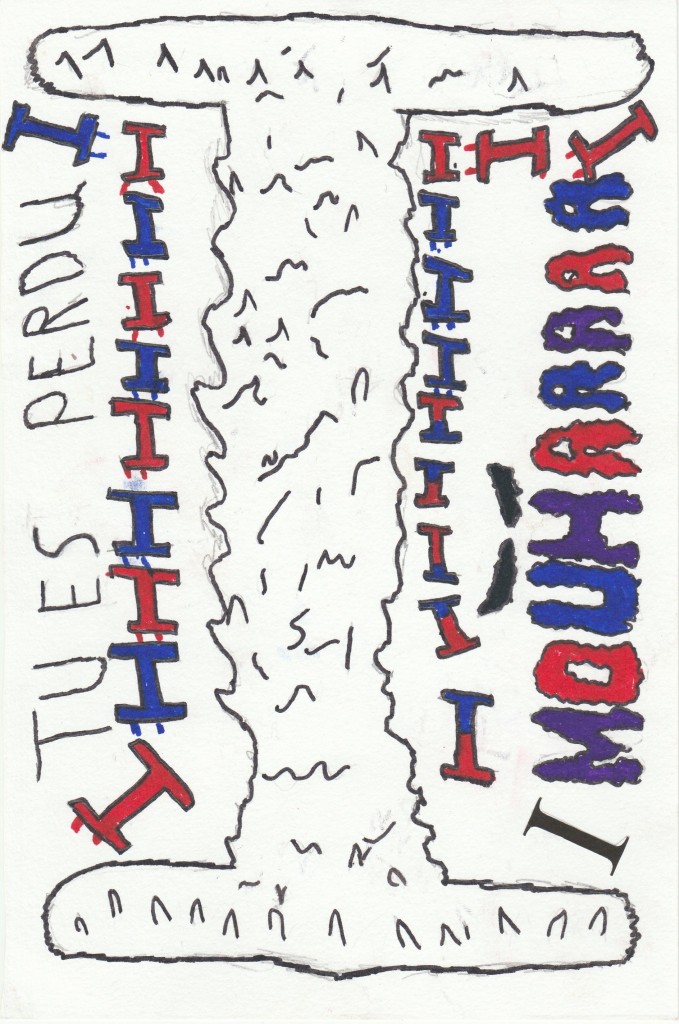 TUES PERDU I
I I I I I I I I I
I
I I I I I I I I I
I
I MOUHAAAAA I